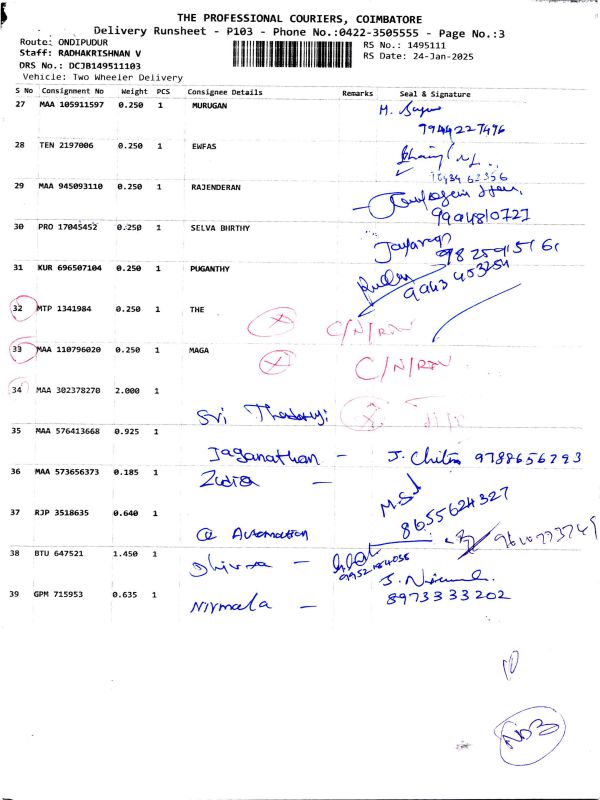 THE PROFESSIONAL COURIERS, COIMBATORE
Delivery Runsheet - P103 - Phone No.:0422-3505555 - Page No.:3
Route: ONDIPUDUR
RS No.: 1495111
Staff: RADHAKRISHNAN V
RS Date: 24-Jan-2025
DRS No.: DCJB149511103
Vehicle: Two Wheeler Delivery
S No Consignment No Weight PCS Consignee Details Remarks Seal & Signature
27 MAA 105911597 0.250 1 MURUGAN
7944227496
28 TEN 2197006 0.250 1 EWFAS
29 MAA 945093110 0.250 1 RAJENDERAN
9994810727
30 PRO 17045452 0.250 1 SELVA BHRTHY
31 KUR 696507104 0.250 1 PUGANTHY
9943 403254
32 MTP 1341984 0.250 1 THE
C/N/RTN
33 MAA 110796020 0.250 1 MAGA
C/N/RTN
34 MAA 302378270 2.000 1
Sri
35 MAA 576413668 0.925 1
Jaganathan - J. Chitra 9788656293
36 MAA 573656373 0.185 1
8655624327
37 RJP 3518635 0.640 1
Automation
38 BTU 647521 1.450 1
39 GPM 715953 0.635 1
Nirmala - 8973333202